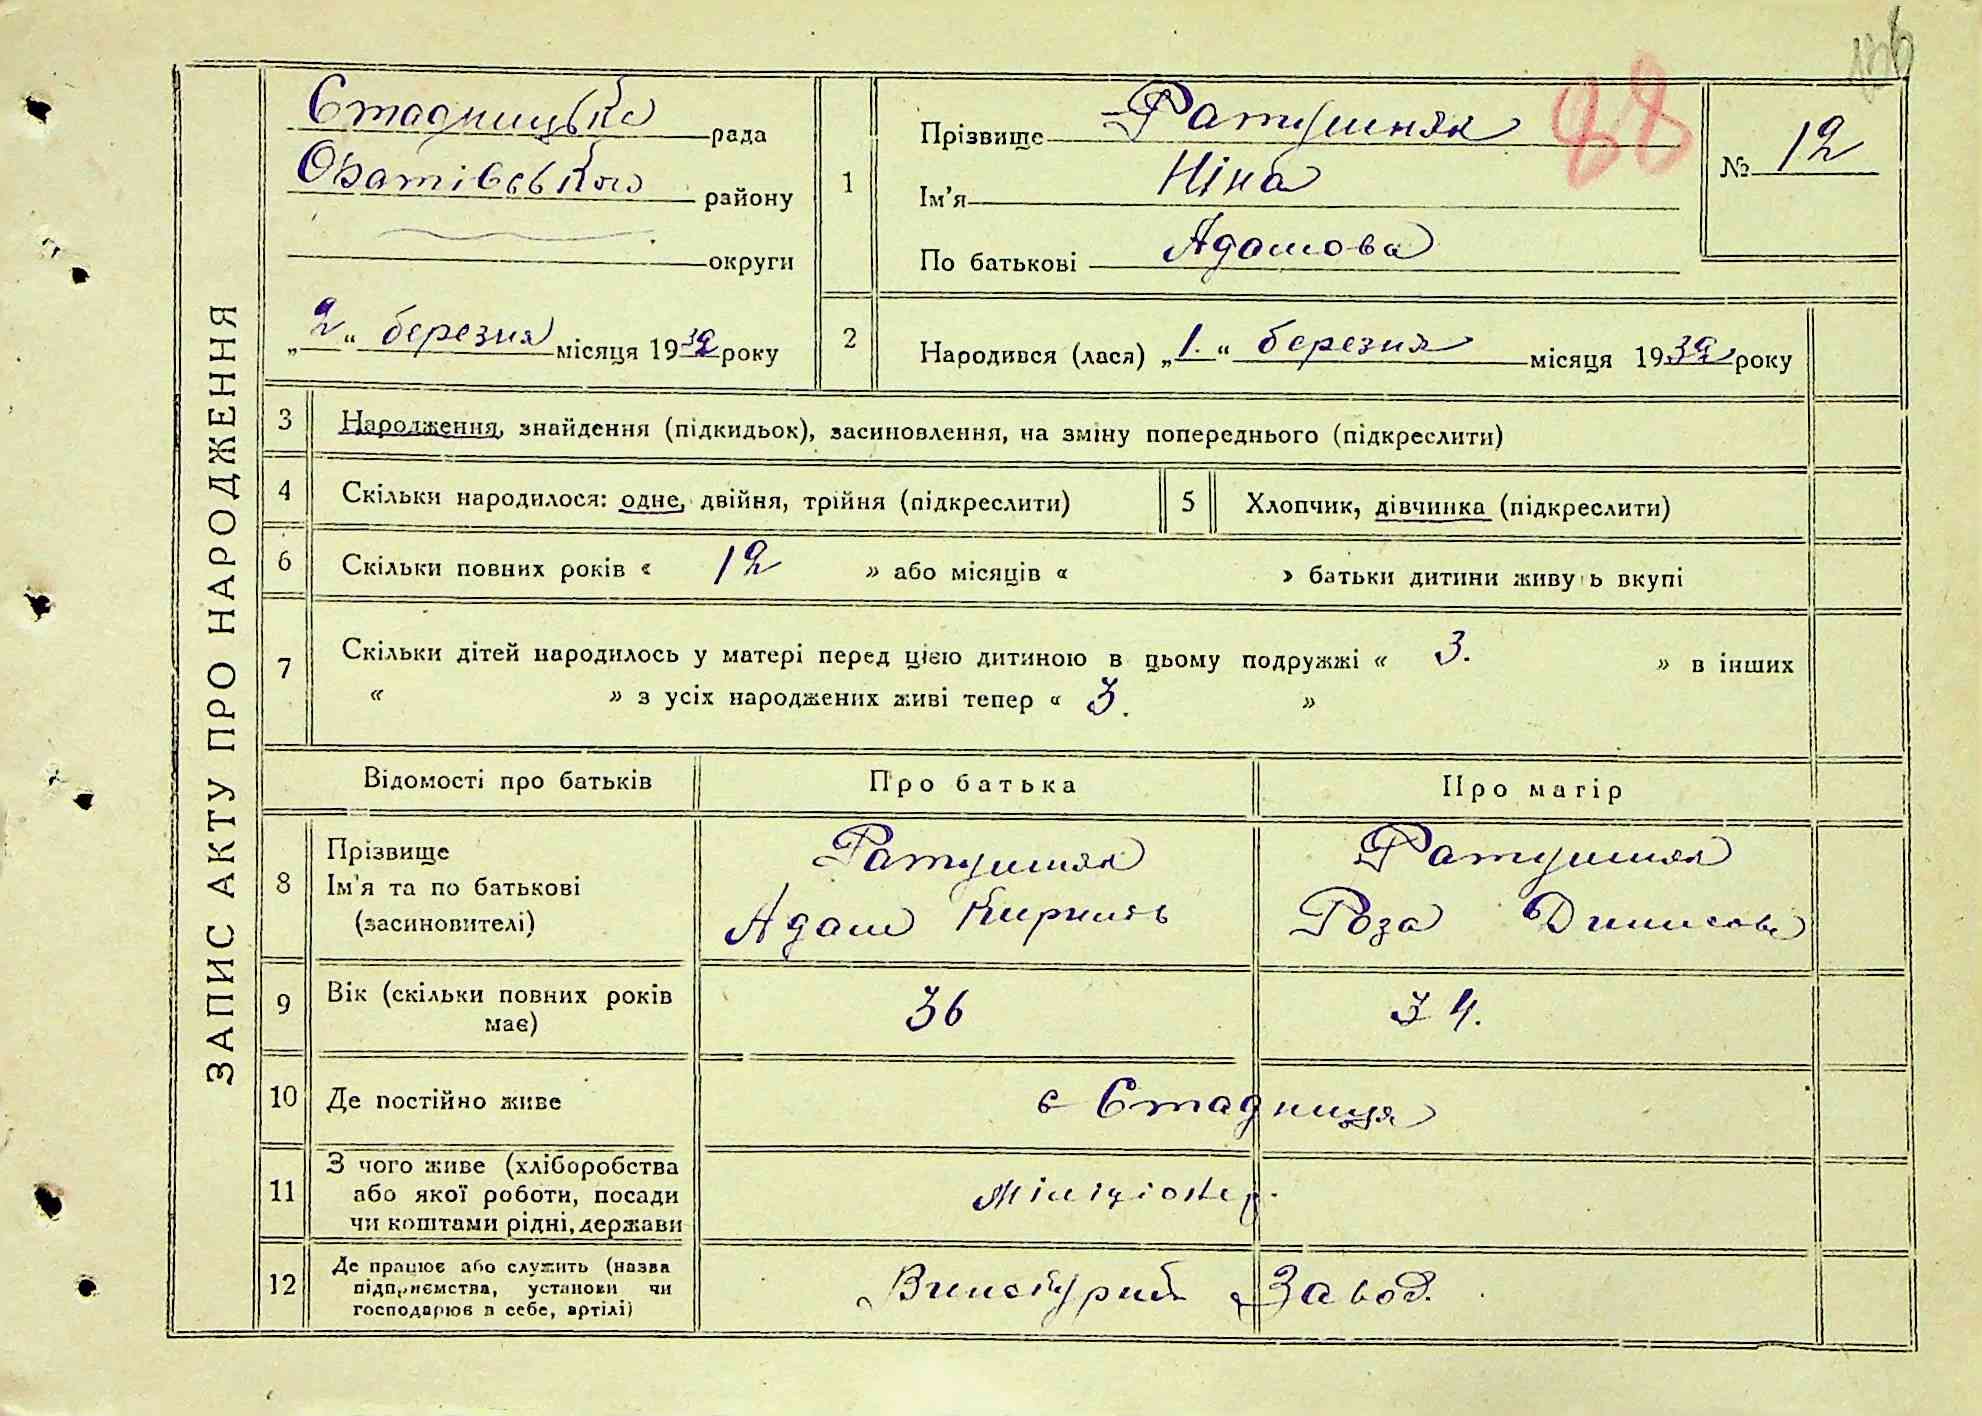 156
88
ЗАПИС АКТУ ПРО НАРОДЖЕННЯ
Стадницька рада
Оратівського району
округи
„2“ березня місяця 1932 року
1
Прізвище Ратушняк
Ім'я Ніна
По батькові Адамова
№ 12
2
Народився (лася) „1.“ березня місяця 1932 року
3 Народження, знайдення (підкидьок), засиновлення, на зміну попереднього (підкреслити)
4 Скільки народилося: одне, двійня, трійня (підкреслити)
5 Хлопчик, дівчинка (підкреслити)
6 Скільки повних років « 12 » або місяців « » батьки дитини живуть вкупі
7 Скільки дітей народилось у матері перед цією дитиною в цьому подружжі « 3. » в інших
« » з усіх народжених живі тепер « 3. »
Відомості про батьків Про батька Про матір
8 Прізвище
Ім'я та по батькові
(засиновителі)
Ратушняк
Адам Кирилів
Ратушняк
Роза Динисова
9 Вік (скільки повних років
має)
36 34.
10 Де постійно живе
с Стадниця
11 З чого живе (хліборобства
або якої роботи, посади
чи коштами рідні, держави
Міліціонер.
12 Де працює або служить (назва
підприємства, установи чи
господарює в себе, артілі)
Завод.